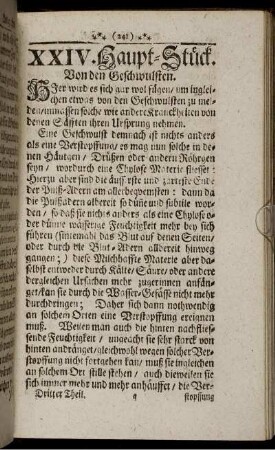 (241)
XXIV. Haupt-Stück.
Von den Geschwulsten.
HIer wird es sich gar wol fügen/ um zuglei-
chen etwas von den Geschwulsten zu mel-
den/ inmassen solche wie andere Kranckheiten von
denen Säfften ihren Ursprung nehmen.
Eine Geschwulst demnach ist nichts anders
als eine Verstopffung/ es mag nun solche in de-
nen Häutgen/ Drüßen oder andern Röhrgen
seyn/ wordurch eine Chylose Materie fliesset:
Hierzu aber sind die äusserste und zarteste Ende
der Pulß-Adern am allerbequemsten: dann da
die Pulßadern allbereit so dünne und subtile wor-
den/ so daß sie nichts anders als eine Chylose o-
der dünne wässerige Feuchtigkeit mehr bey sich
führen (sintemahl das Blut auf denen Seiten/
oder durch die Blut-Adern allbereit hinweg
gangen;) diese Milchhaffte Materie aber da-
selbst entweder durch Kälte/ Säure/ oder andere
dergleichen Ursachen mehr zugerinnen anfän-
get/ kan sie durch die Wasser-Gefässe nicht mehr
durchdringen; Daher sich dann nothwendig
an solchem Orten eine Verstopffung ereignen
muß. Weilen man auch die hinten nachfließ-
sende Feuchtigkeit/ ungeacht sie sehr starck von
hinten andränget/ gleichwohl wegen solcher Ver-
stopffung nicht fortgehen kan/ muß sie ingleichen
an solchem Ort stille stehen/ auch dieweilen sie
sich immer mehr und mehr anhäuffet/ die Ver-
Dritter Theil. q stopffung